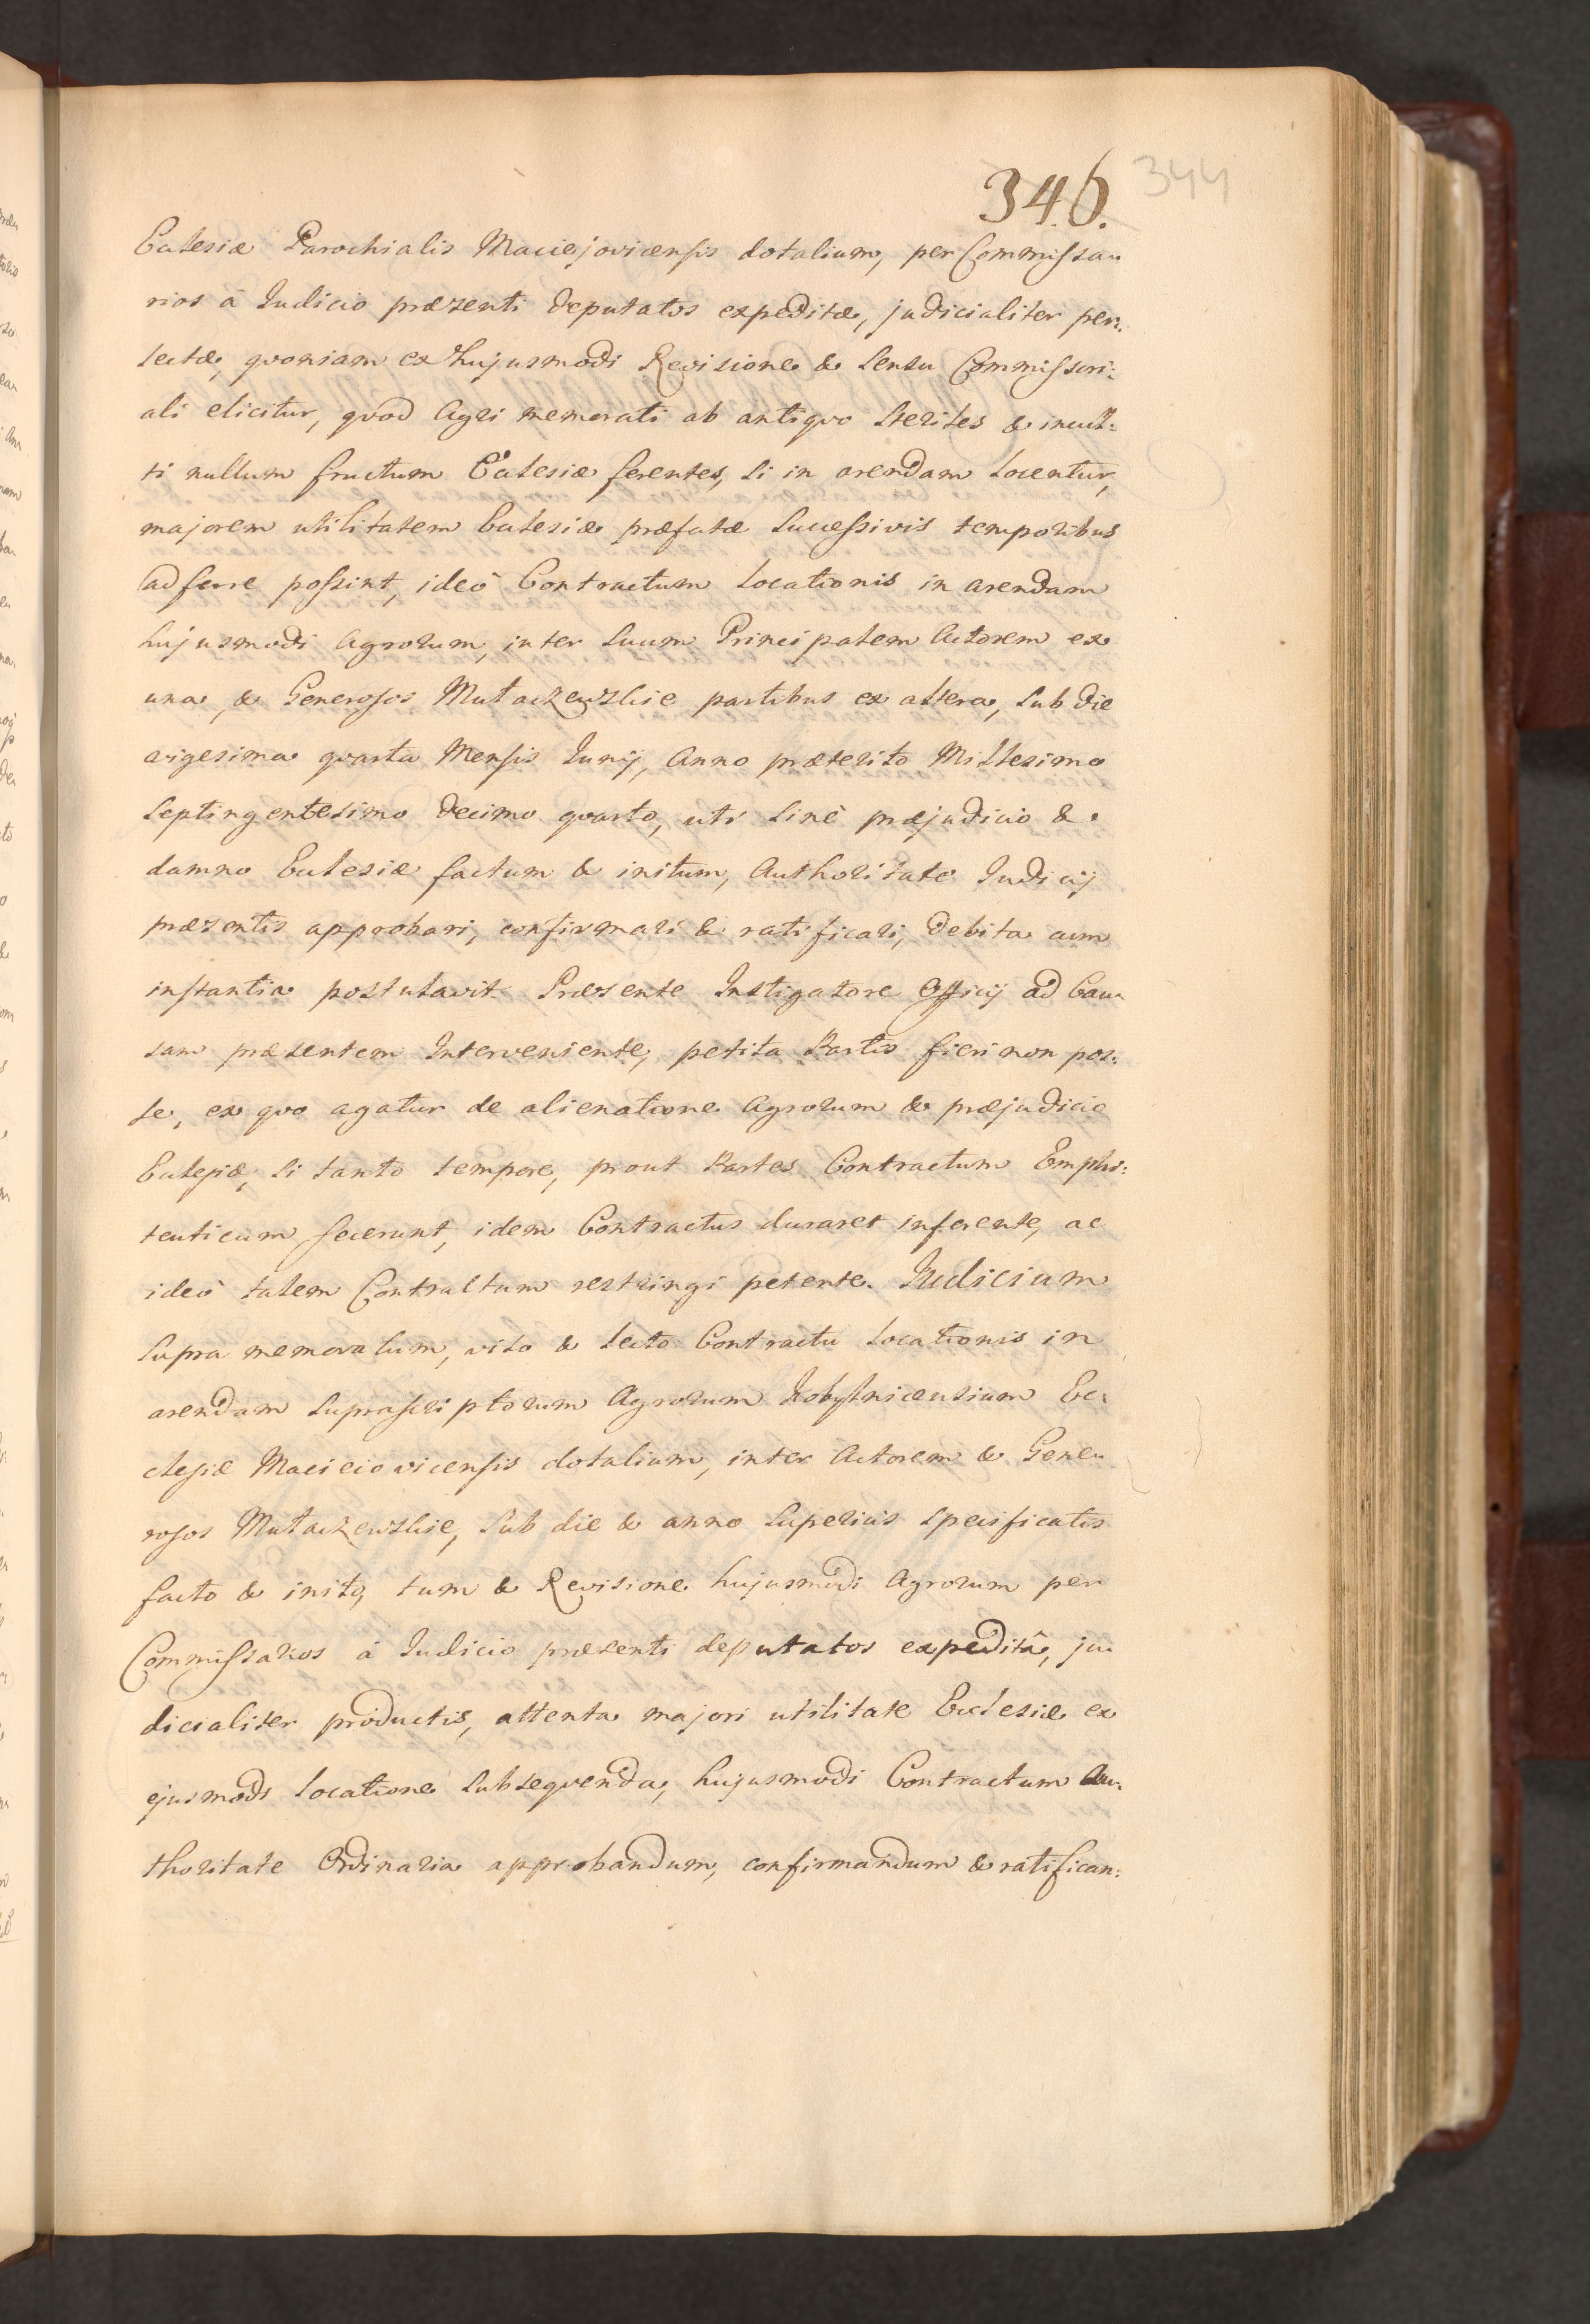 346. 344
Eclesiæ Parochialis Maciejovicensis dotalium, per Commissa-
rios á Iudicio præsenti deputatos expeditæ, judicialiter per-
lectæ, qvoniam ex hujusmodi Revisione & sensu Commissori-
ali elicitur, qvod Agri memorati ab antiqvo steriles & incul-
ti nullum fructum Eclesiæ ferentes, si in arendam locentur,
majorem utilitatem Eclesiæ præfatæ successivis temporibus
adferre possint, ideó Contractum locationis in arendam
hujusmodi Agrorum, inter suum Principalem Actorem ex
una, & Generosos Mułaczewskie partibus ex altera, sub die
vigesima qvarta Mensis Iunij, Anno præterito Millesimo
septingentesimo decimo qvarto, uti sinè præjudicio &
damno Eclesiæ factum & initum, Authoritate Iudicij
præsentis approbari, confirmari & ratificari, debita cum
instantia postulavit. Præsente Instigatore Officij ad Cau-
sam præsentem Interveniente, petita Partis fieri non pos-
se, ex qvo agatur de alienatione Agrorum & præjudicio
Eclesiæ, si tanto tempore, prout Partes Contractum Emphi-
teuticum fecerunt, idem Contractus duraret inferente, ac
ideó talem Contractum restringi petente. Iudicium
supra memoratum, viso & lecto Contractu locationis in
arendam suprascriptorum Agrorum Kobylnicensium Ec-
clesiæ Macieiovicensis dotalium, inter Actorem & Gene-
rosos Mułaczewskie, sub die & anno superius specificatis
facto & inito, tum & Revisione hujusmodi Agrorum per
Commissarios á Iudicio præsenti deputatos expeditâ, ju-
dicialiter productis, attenta majori utilitate Ecclesiæ ex
ejusmodi locatione subseqvenda, hujusmodi Contractum Au-
thoritate Ordinaria approbandum, confirmandum & ratifican-